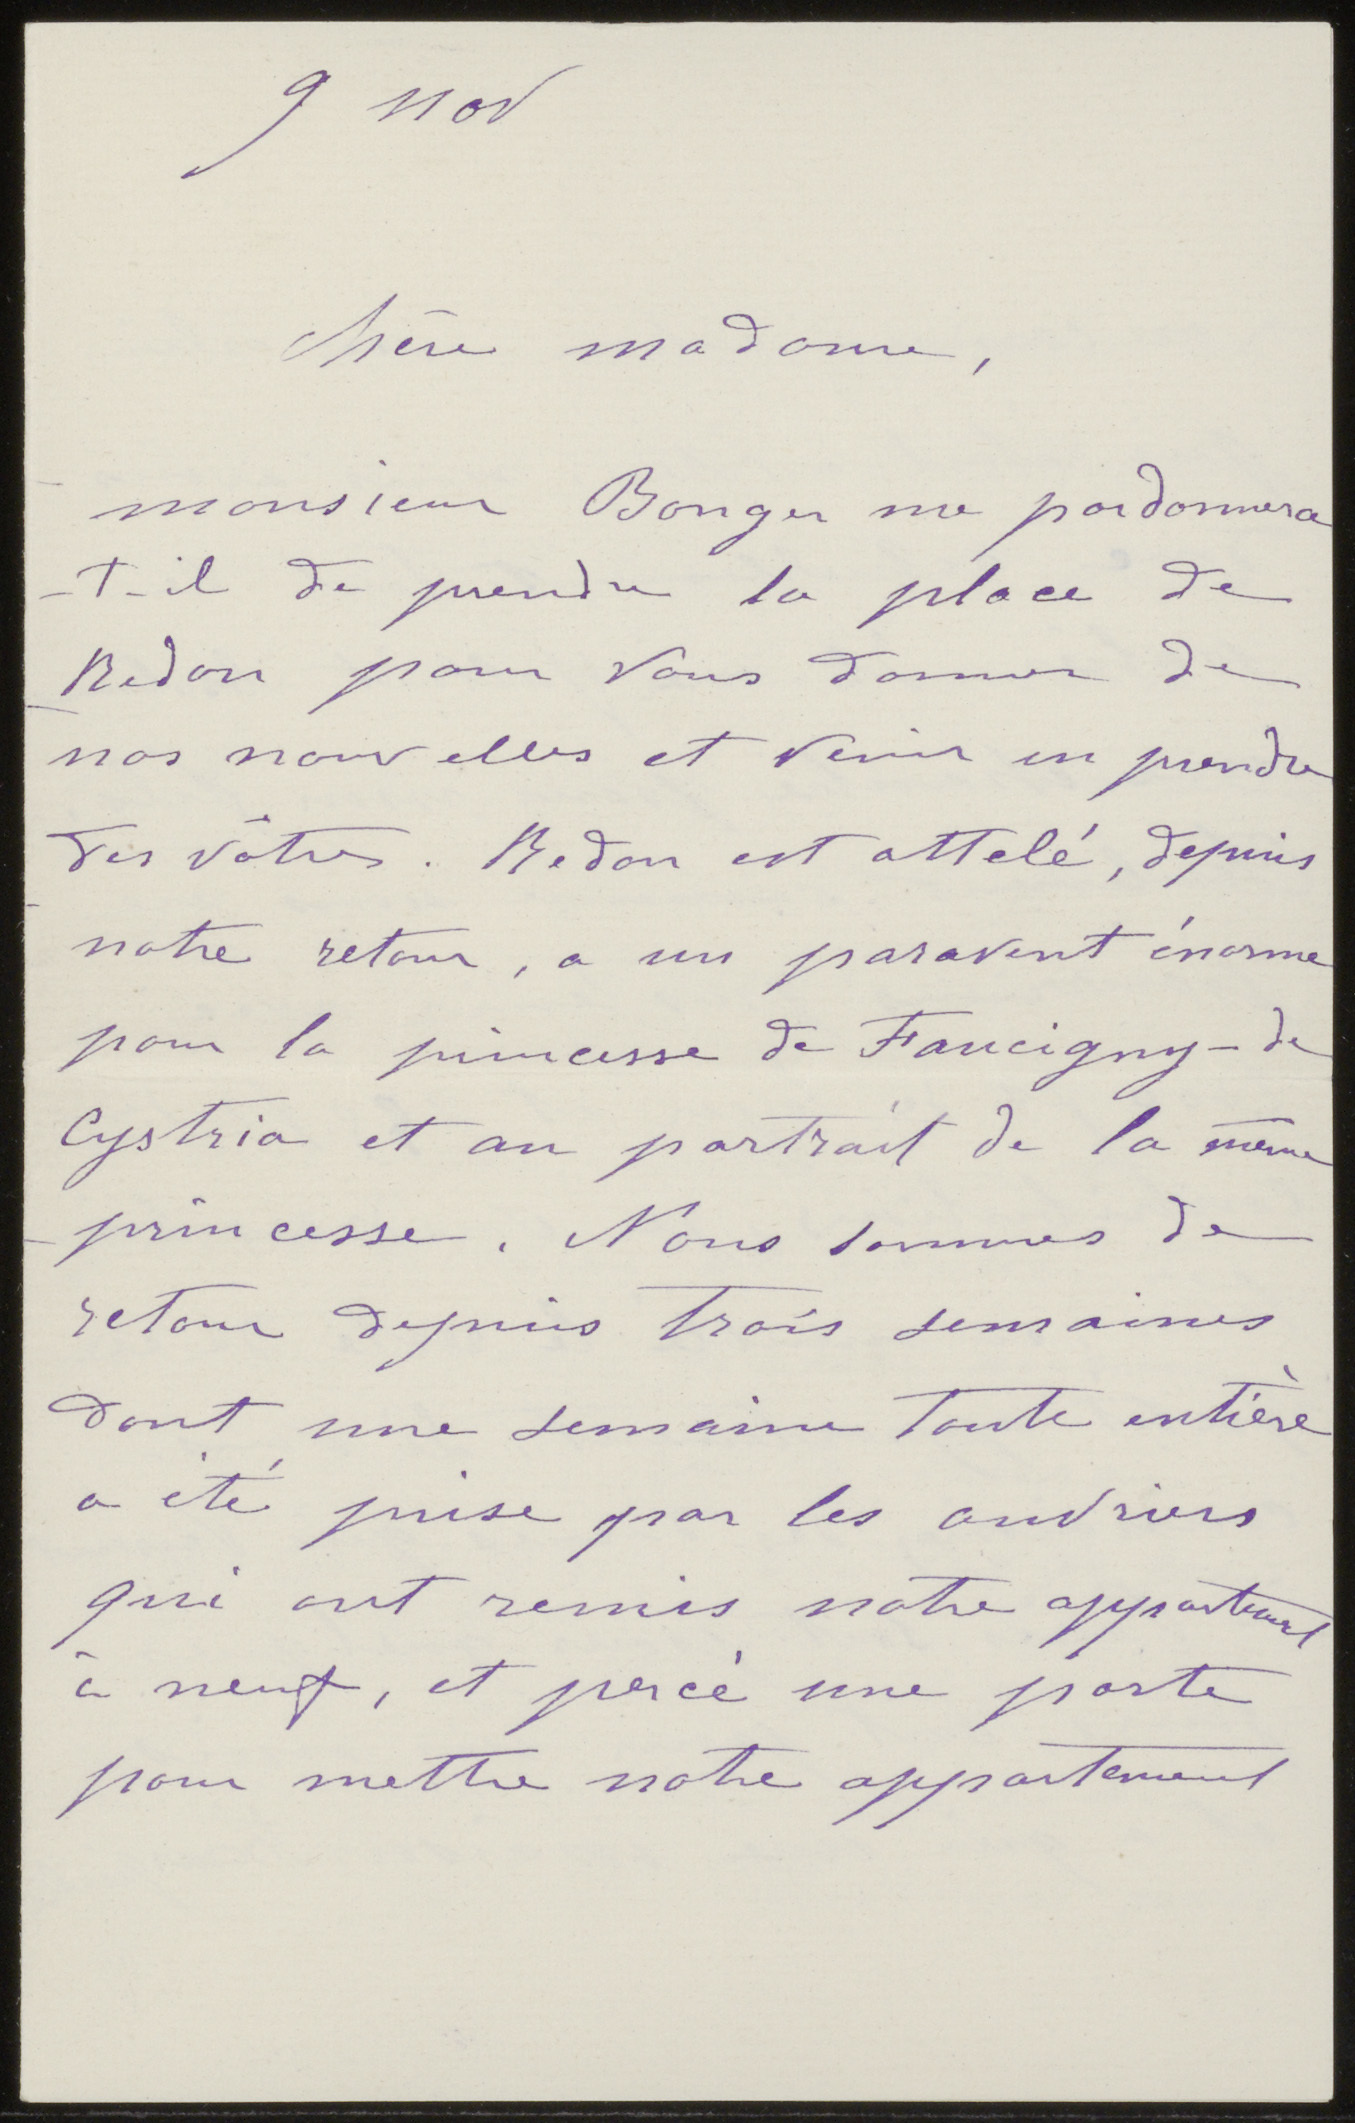 9 nov
Chère madame,
monsieur Bonger me pardonnera
-t-il de prendre la place de
Redon pour vous donner de
nos nouvelles et venir en prendre
des vôtres. Redon est attelé, depuis
notre retour, a un paravent énorme
pour la princesse de Faucigny-de
Cystria et au portrait de la même
princesse. Nous sommes de
retour depuis trois semaines
dont une semaine toute entière
a été prise par les ouvriers
qui ont remis notre appartement
à neuf, et percé une porte
pour mettre notre appartement